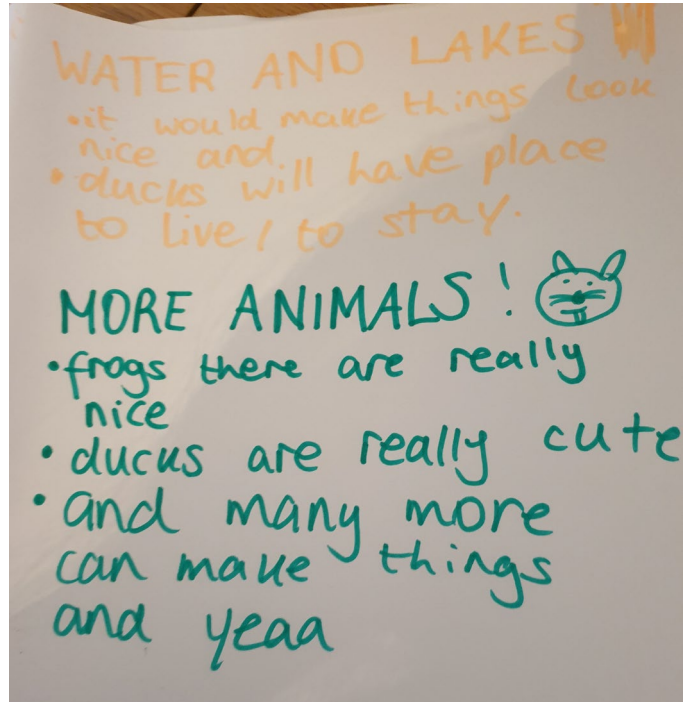 WATER AND LAKES
•it would make things look
nice and
•ducks will have place
to live/ to stay.
MORE ANIMALS!
•frogs there are really
nice
•ducks are really cute
•and many more
can make things
and yeaa